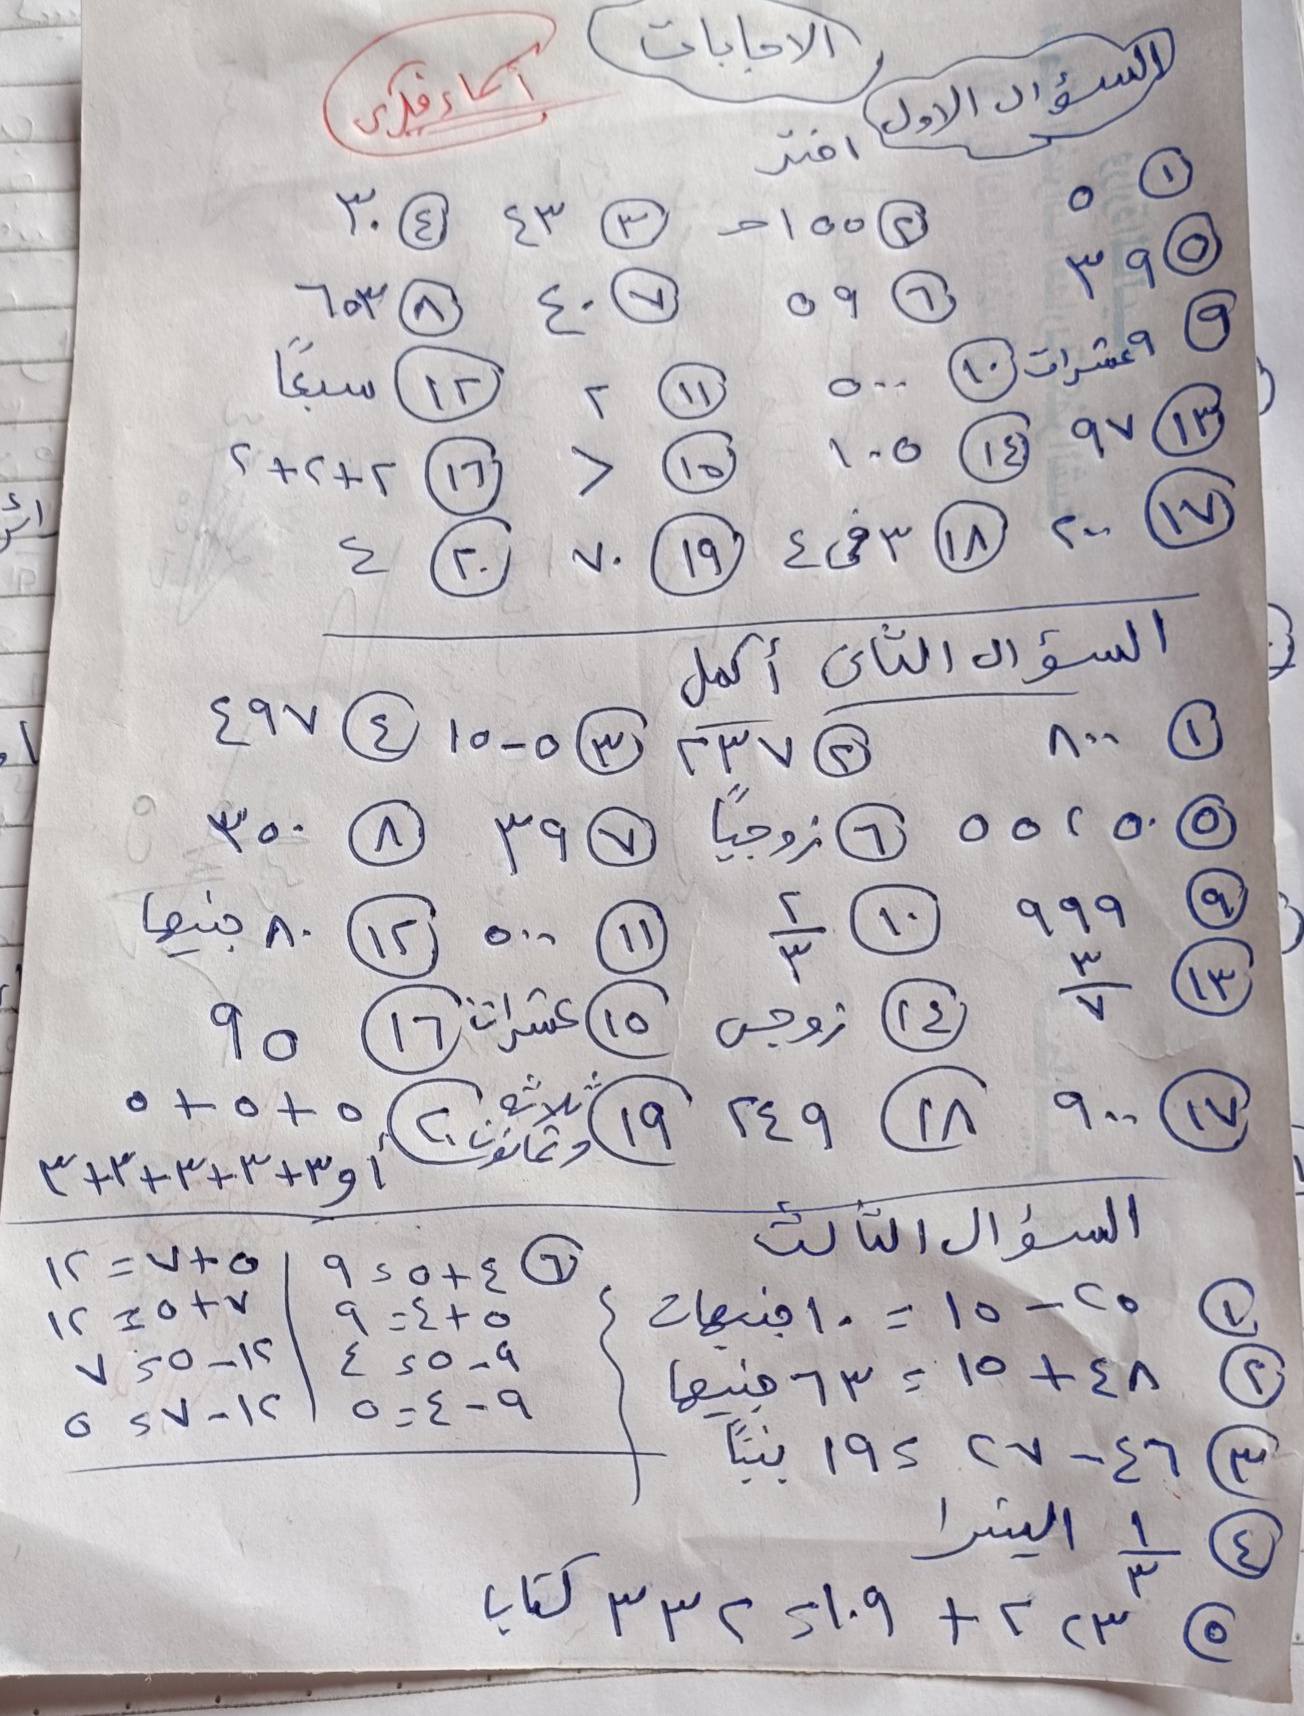 الاجابات
أسماء فكرى
السؤال الاول
اختر
① ٥ ② ١٥٥ ③ ٤٣ ④ ٣٠
⑤ ٣٩ ⑥ ٥٩ ⑦ ٤٠ ⑧ ٦٥٣
⑨ ٩ عشرات ⑩ ٥٠٠ ⑪ ٢ ⑫ سبعًا
⑬ ٩٧ ⑭ ١٠٥ ⑮ > ⑯ ٢+٢+٢
⑰ ٢٠٠ ⑱ ٣ فى ٤ ⑲ ٧٠ ⑳ ٤
السؤال الثانى أكمل
① ٨٠٠ ② ٢٣٧ ③ ٥-١٥ ④ ٤٩٧
⑤ ٥٠ ، ٥٥ ⑥ زوجيًا ⑦ ٣٩ ⑧ ٣٥٠
⑨ ٩٩٩ ⑩ ٢/٣ ⑪ ٥٠٠ ⑫ ٨٠ جنيها
⑬ ٣/٧ ⑭ زوجى ⑮ عشرات ⑯ ٩٥
⑰ ٩٠٠ ⑱ ٢٤٩ ⑲ ثلاثة وثمانون ⑳ ٥+٥+٥
أو ٣+٣+٣+٣+٣
السؤال الثالث
① ٢٥ - ١٥ = ١٠ جنيهات
② ٤٨ + ١٥ = ٦٣ جنيها
③ ٤٦ - ٢٧ = ١٩ بنتًا
④ ١/٣ البيتزا
⑤ ٢٢٣ + ١٠٩ = ٣٣٢ كتابا
⑥ ٤+٥=٩
٥+٤=٩
٩-٥=٤
٩-٤=٥
٥+٧=١٢
٧+٥=١٢
١٢-٥=٧
١٢-٧=٥